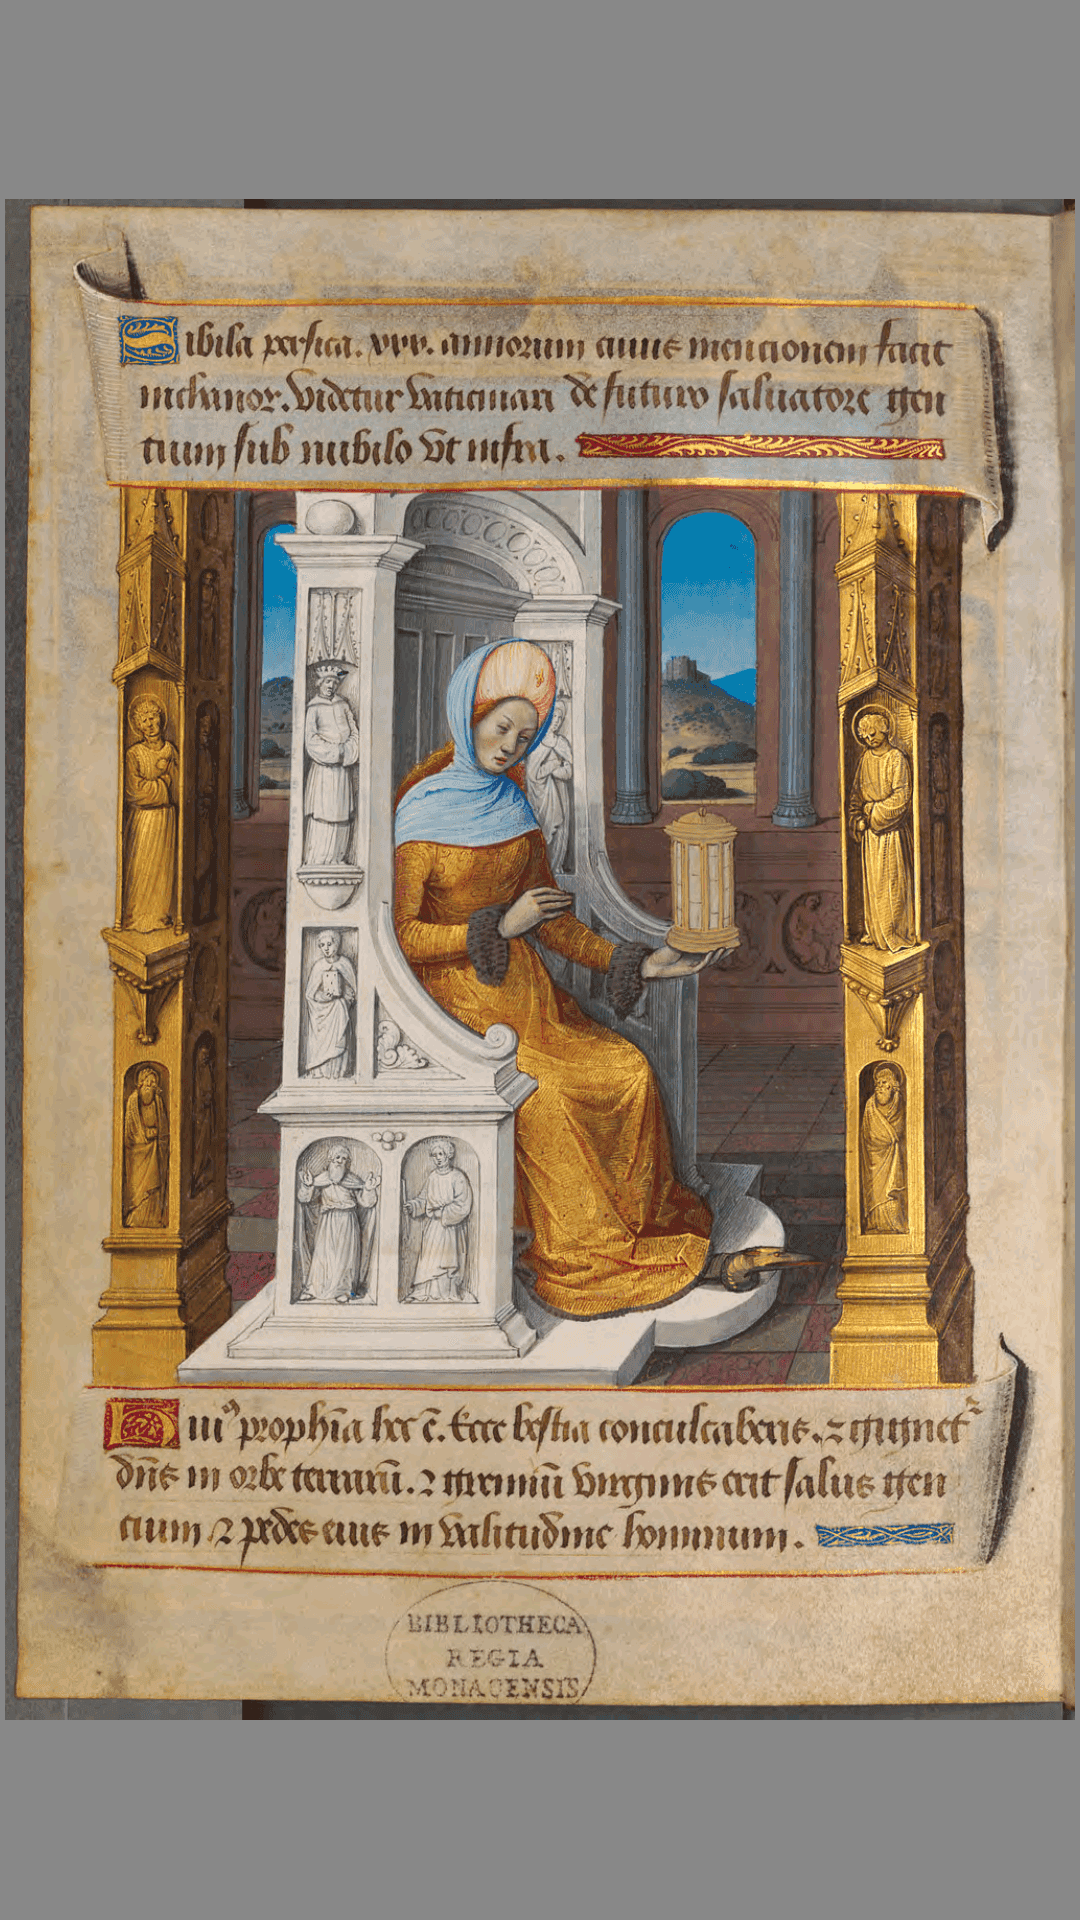 Sibila persica. xxx. annorum cuius mencionem facit
nichanor. Videtur vaticinari de futuro salvatore gen
tium sub nubilo vt infra.
Huiꝰ prophīa hec ē. Ecce bestia conculcaberis. ⁊ gignet᷑
dn̄s in orbe terrarū. ⁊ gremiū virginis erit salus gen
tium ⁊ pedes eius in valitudine hominum.
BIBLIOTHECA
REGIA
MONACENSIS